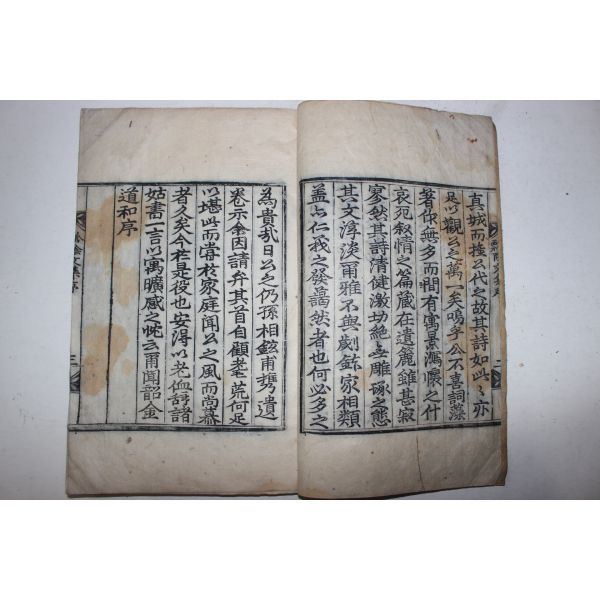 真城而挃以代之故其詩如此〻亦
足以觀公之萬一矣嗚乎公不喜詞藻
著作無多而間有寓景瀉懷之什
哀死叙情之篇藏在遺簏雖甚寂
寥然其詩清健激切絶無雕琢之態
其文淳淡爾雅不與劌鉥家相類
盖亦仁義之發藹然者也何必多之
二
為貴哉日公之仍孫相鉉甫携遺
卷示余因請弁其首自顧耄荒何足
以堪此而嘗於家庭聞公之風而尚慕
者久矣今於是役也安得以老傓辞諸
姑書一言以寓曠感之忱云爾聞韶金
道和序
文集序
三